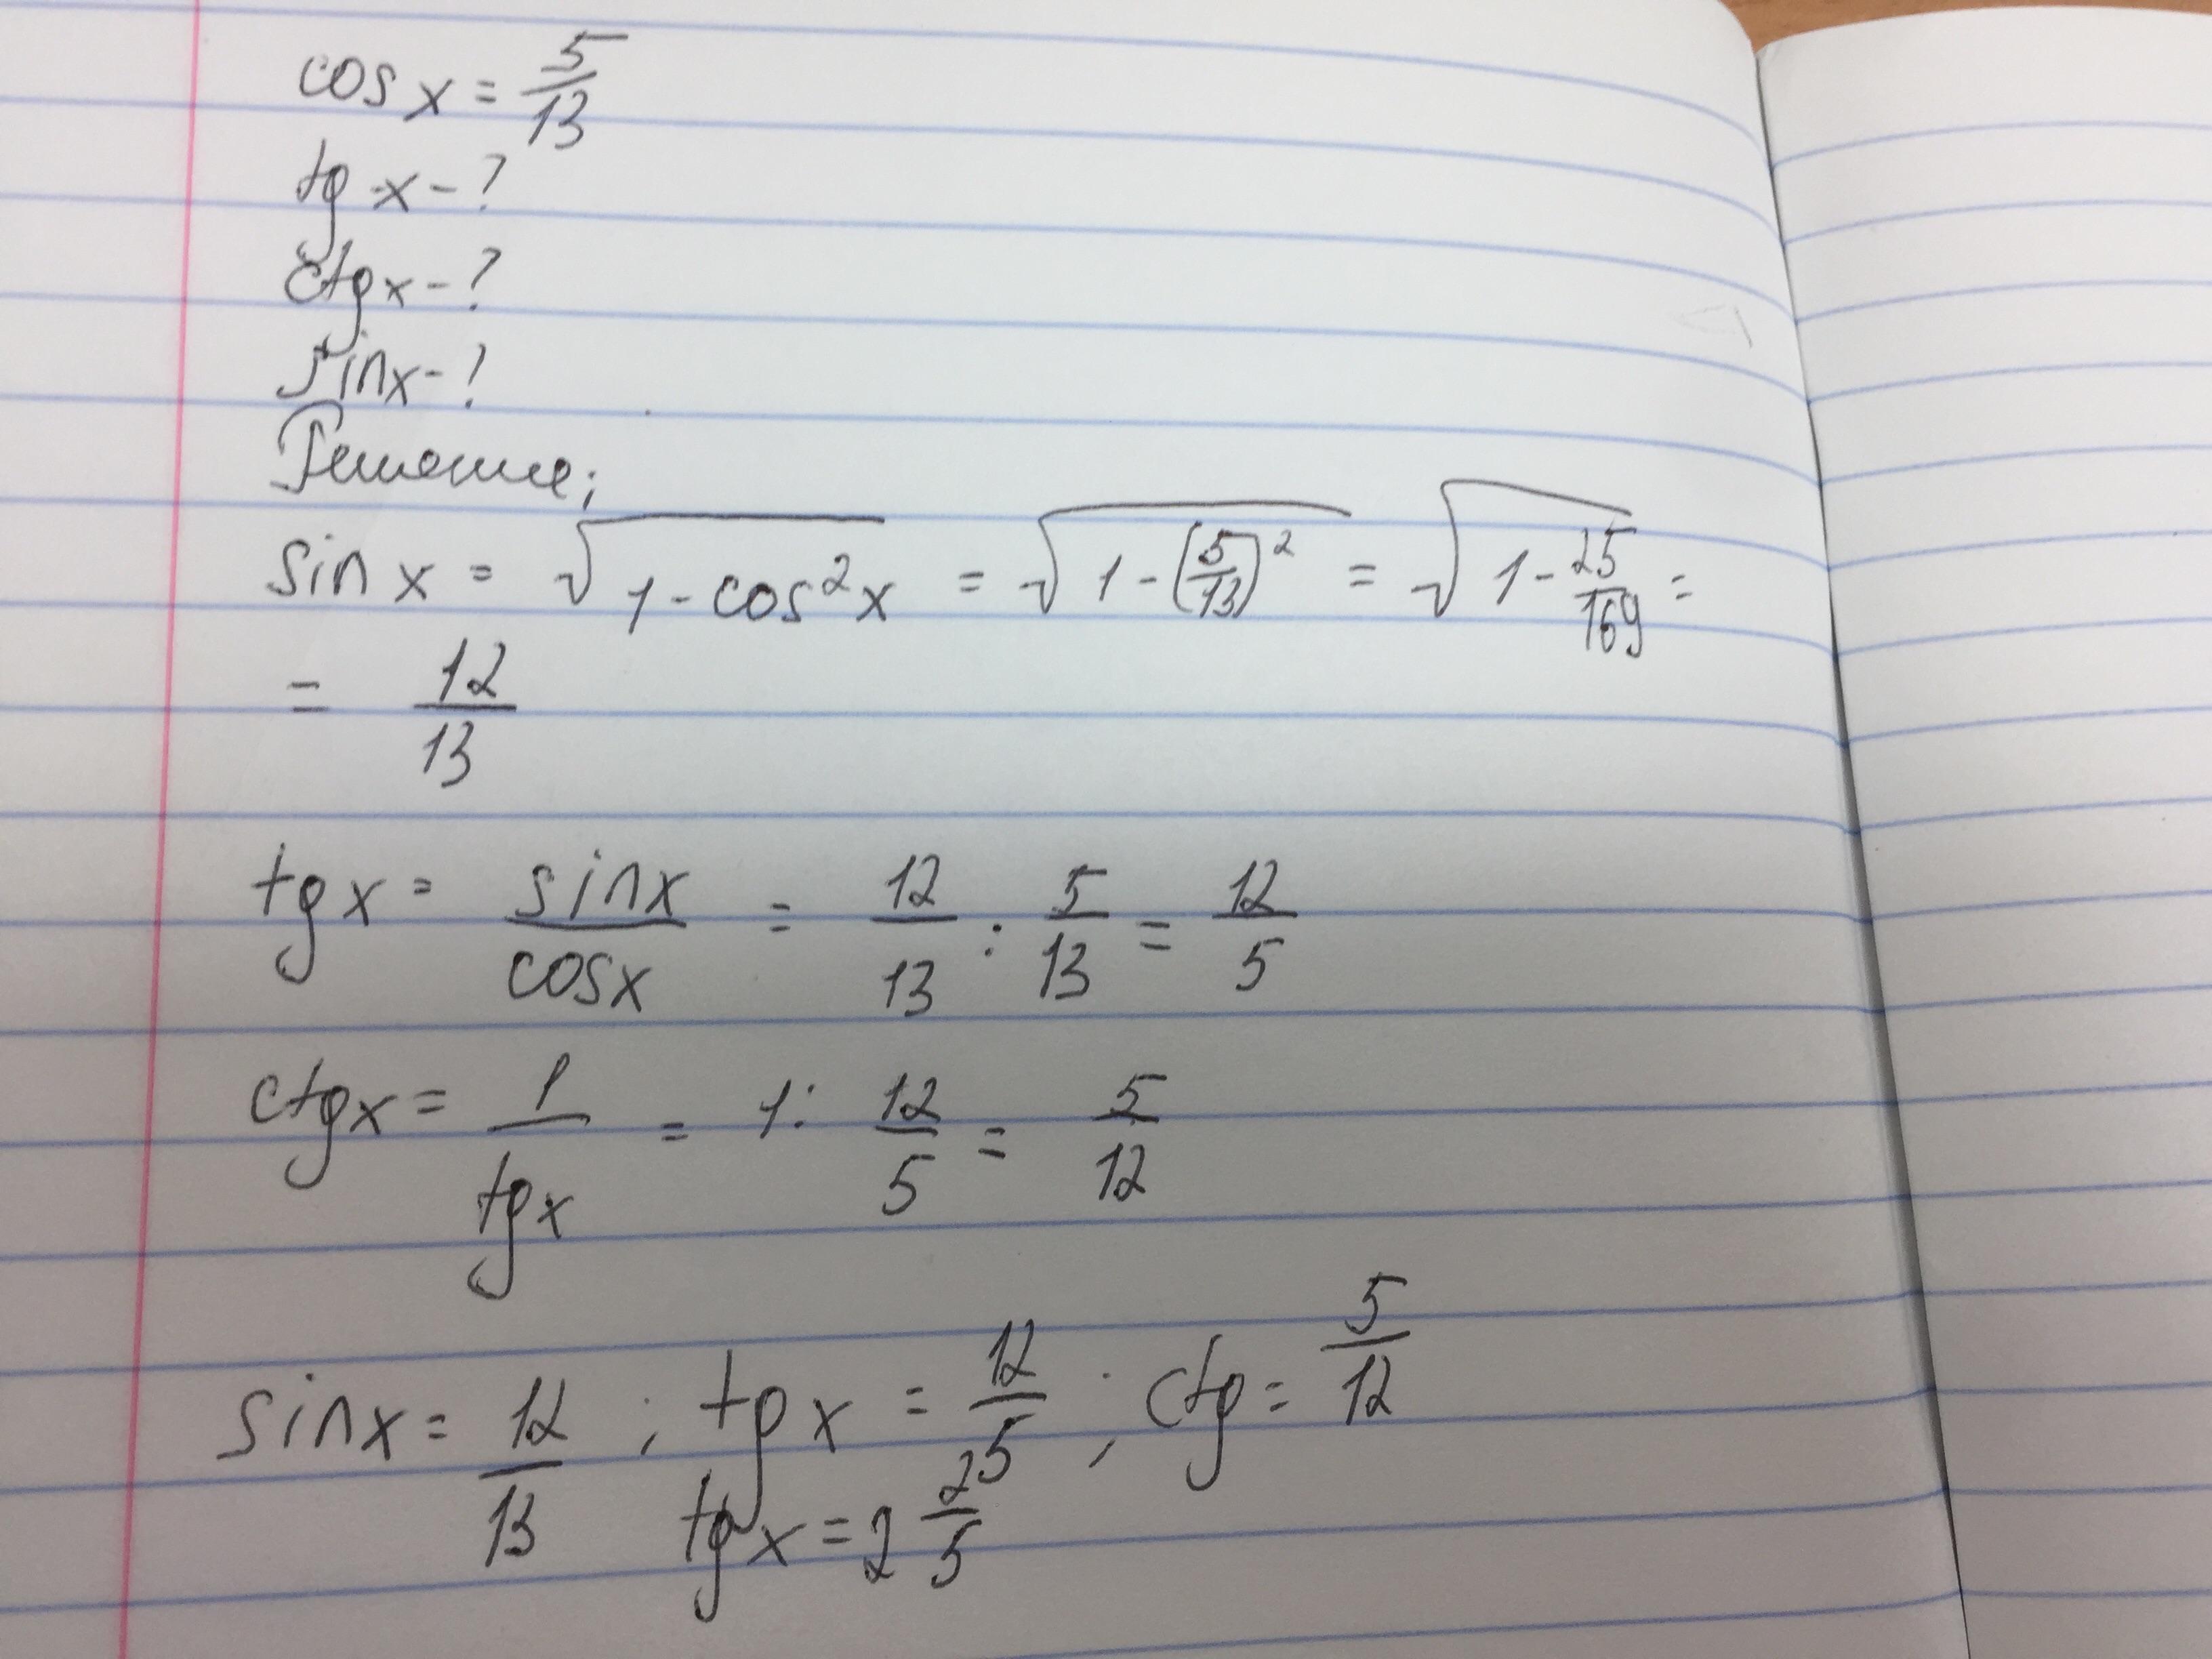 cos x = 5/13
tg x - ?
ctg x - ?
sin x - ?
Решение;
sin x = √(1 - cos²x) = √(1 - (5/13)²) = √(1 - 25/169) =
= 12/13
tg x = sin x/cos x = 12/13 : 5/13 = 12/5
ctg x = 1/tg x = 1 : 12/5 = 5/12
sin x = 12/13 ; tg x = 12/5 ; ctg = 5/12
tg x = 2 2/5